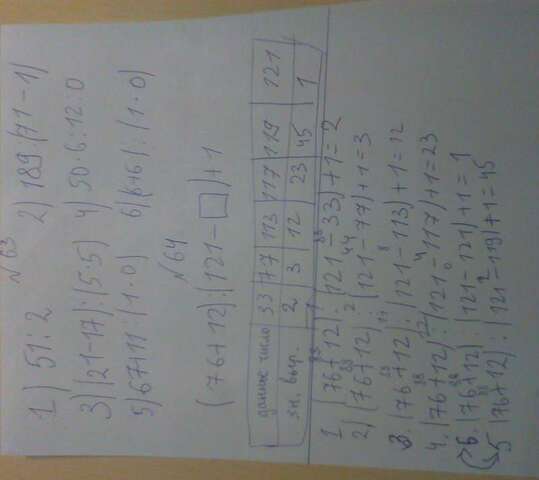 №63
1) 51:2 2) 189:(71-1)
3)(21-17):(5·5) 4) 50·6·12:0
5)67+11:(1·0) 6)(6+6):(1·0)
№64
(76+12):(121-□)+1
данное число 33 77 113 117 119 121
зн. выр. 2 3 12 23 45 1
1 (76+12):(121-33)+1=2
88 88
2) (76+12):(121-77)+1=3
88 2 44
3. (76+12):(121-113)+1=12
88 11 8
4. (76+12):(121-117)+1=23
88 22 4
6. (76+12):(121-121)+1=1
88 0
5 (76+12):(121-119)+1=45
88 2